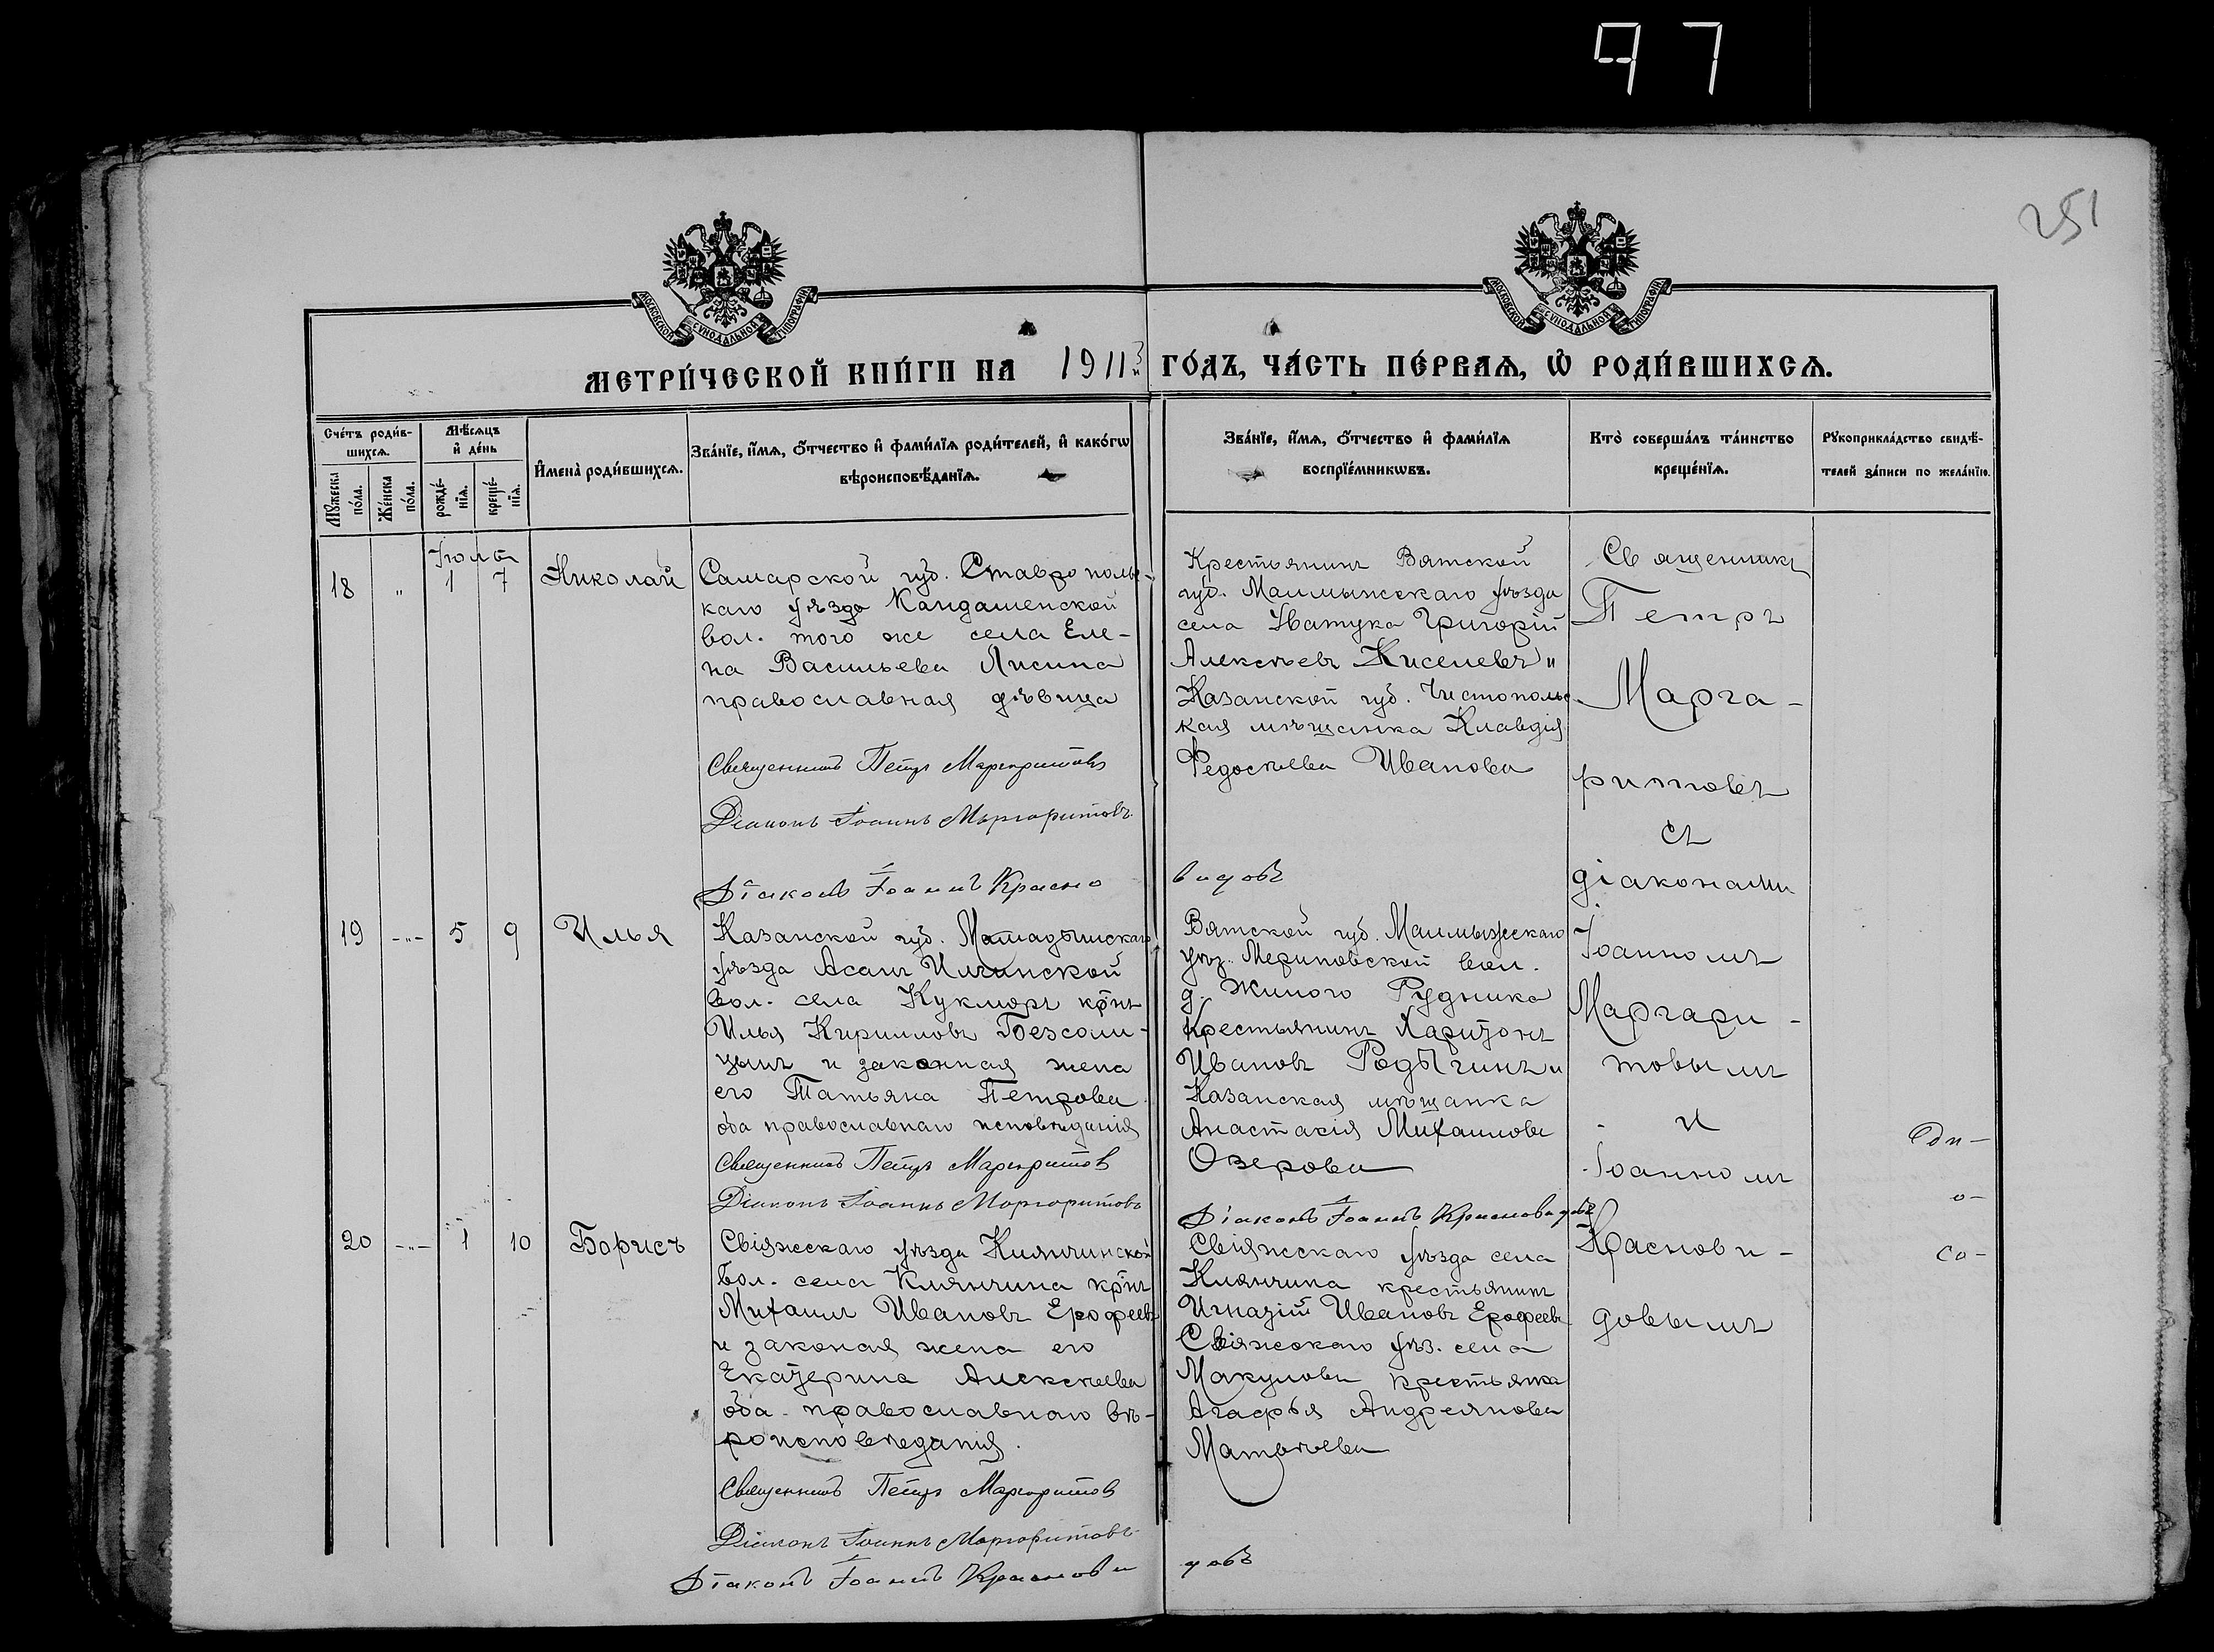 97
251
МОСКОВСКОЙ СѴНОДАЛЬНОЙ ТИПОГРАФІИ
МОСКОВСКОЙ СѴНОДАЛЬНОЙ ТИПОГРАФІИ
МЕТРИ́ЧЕСКОЙ КНИ́ГИ НА 1911 ГО́ДЪ, ЧА́СТЬ ПЕ́РВАѦ, Ѽ РОДИ́ВШИХСѦ.
Сче́тъ роди́в-
шихсѧ.
Мꙋ́жеска по́ла.
Же́нска по́ла.
Мѣ́сѧцъ
и҆ де́нь
рожде́-
нїѧ.
креще́-
нїѧ.
И҆мена̀ роди́вшихсѧ.
Зва́нїе, и҆́мѧ, ѻ҆́тчество и҆ фами́лїѧ роди́телей, и҆ како́гѡ
вѣроисповѣ́данїѧ.
Зва́нїе, и҆́мѧ, ѻ҆́тчество и҆ фами́лїѧ
воспрїе́мникѡвъ.
Кто̀ соверша́лъ та́инство
креще́нїѧ.
Рꙋкоприкла́дство свидѣ́-
телей за́писи по жела́нїю.
Іюль
18 " 1 7 Николай
Самарской губ. Ставрополь-
скаго уѣзда
вол. того же села Еле-
на Васильева Лисина
православная дѣвица
Священникъ Петръ Маргаритовъ
Діаконъ Іоаннъ Маргаритовъ
Діаконъ Іоаннъ Красно видовъ
Крестьянинъ Вятской
губ. Малмыжскаго уѣзда
села Григорій
Алексѣевъ Киселевъ и
Казанской губ. Чистополь-
кая мѣщанка Клавдія
Федосѣева Иванова
Священникъ
Петръ
Марга-
ритовъ
съ
діаконами
Іоанномъ
Маргари-
товымъ
и
Іоанномъ
Краснови-
довымъ
19 -"- 5 9 Илья
Казанской губ. Мамадышскаго
уѣзда Асанъ Илгинской
вол. села Кукморъ кр̃нъ
Илья Кирилловъ Безсоли-
цынъ и законная жена
его Татьяна Петрова
оба православнаго исповѣданія
Священникъ Петръ Маргаритовъ
Діаконъ Іоаннъ Маргаритовъ
Вятской губ. Малмыжскаго
уѣз. Мериновской вол.
д. Жилого Рудника
Крестьянинъ Харитонъ
Ивановъ Родыгинъ и
Казанская мѣщанка
Анастасія Михаилова
Озерова
Діаконъ Іоаннъ Красновидовъ
20 -"- 1 10 Борисъ
Свіяжскаго уѣзда Клянчинской
вол. села Клянчина кр̃нъ
Михаилъ Ивановъ Ерофеевъ
и законая жена его
Екатерина Алексѣева
оба православнаго вѣ-
роисповѣданія.
Священникъ Петръ Маргаритовъ
Діаконъ Іоаннъ Маргаритовъ
Діаконъ Іоаннъ Краснови довъ
Свіяжскаго уѣзда села
Клянчина крестьянинъ
Игнатій Ивановъ Ерофеевъ
Свіяжскаго уѣз. села
Макулова крестьянка
Агафья Андреянова
Матвѣева
со-